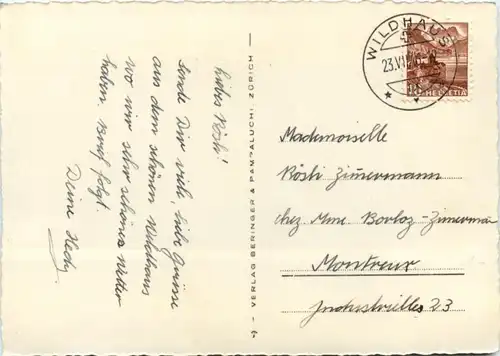 Liebes Rösli!
Sende Dir viele, liebe Grüsse
aus dem schönen Wildhaus
wo wir sehr schönes Wetter
haben. Brief folgt.
Deine Hedy.
- VERLAG BERINGER & PAMPALUCHI, ZÜRICH -
WILDHAUS
23.VI
HELVETIA
Mademoiselle
Rösli Zimmermann
chez Mme Borloz-Zimmerman
Montreux
Industrielles 23